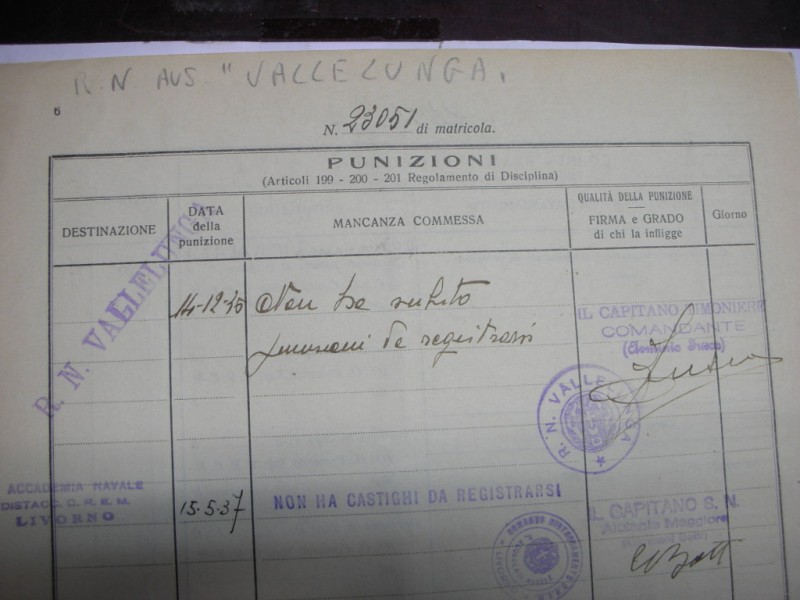 R. N. AUS "VALLELUNGA.
6
N. 23051 di matricola.
PUNIZIONI
(Articoli 199 - 200 - 201 Regolamento di Disciplina)
DESTINAZIONE
DATA
della
punizione
MANCANZA COMMESSA
QUALITÀ DELLA PUNIZIONE
FIRMA e GRADO
di chi la infligge
Giorno
R. N. VALLELUNGA
14-12-35
Non ha subito
punizioni da registrarsi
IL CAPITANO TIMONIERE
COMANDANTE
R. N. VALLELUNGA
ACCADEMIA NAVALE
DISTACC. C. R. E. M.
LIVORNO
15.5.37
NON HA CASTIGHI DA REGISTRARSI
IL CAPITANO S. N.
Aiutante Maggiore